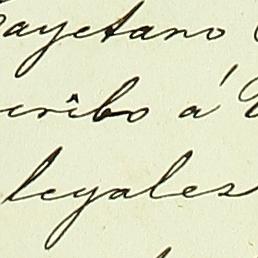 Cayetano
cribo á
legales